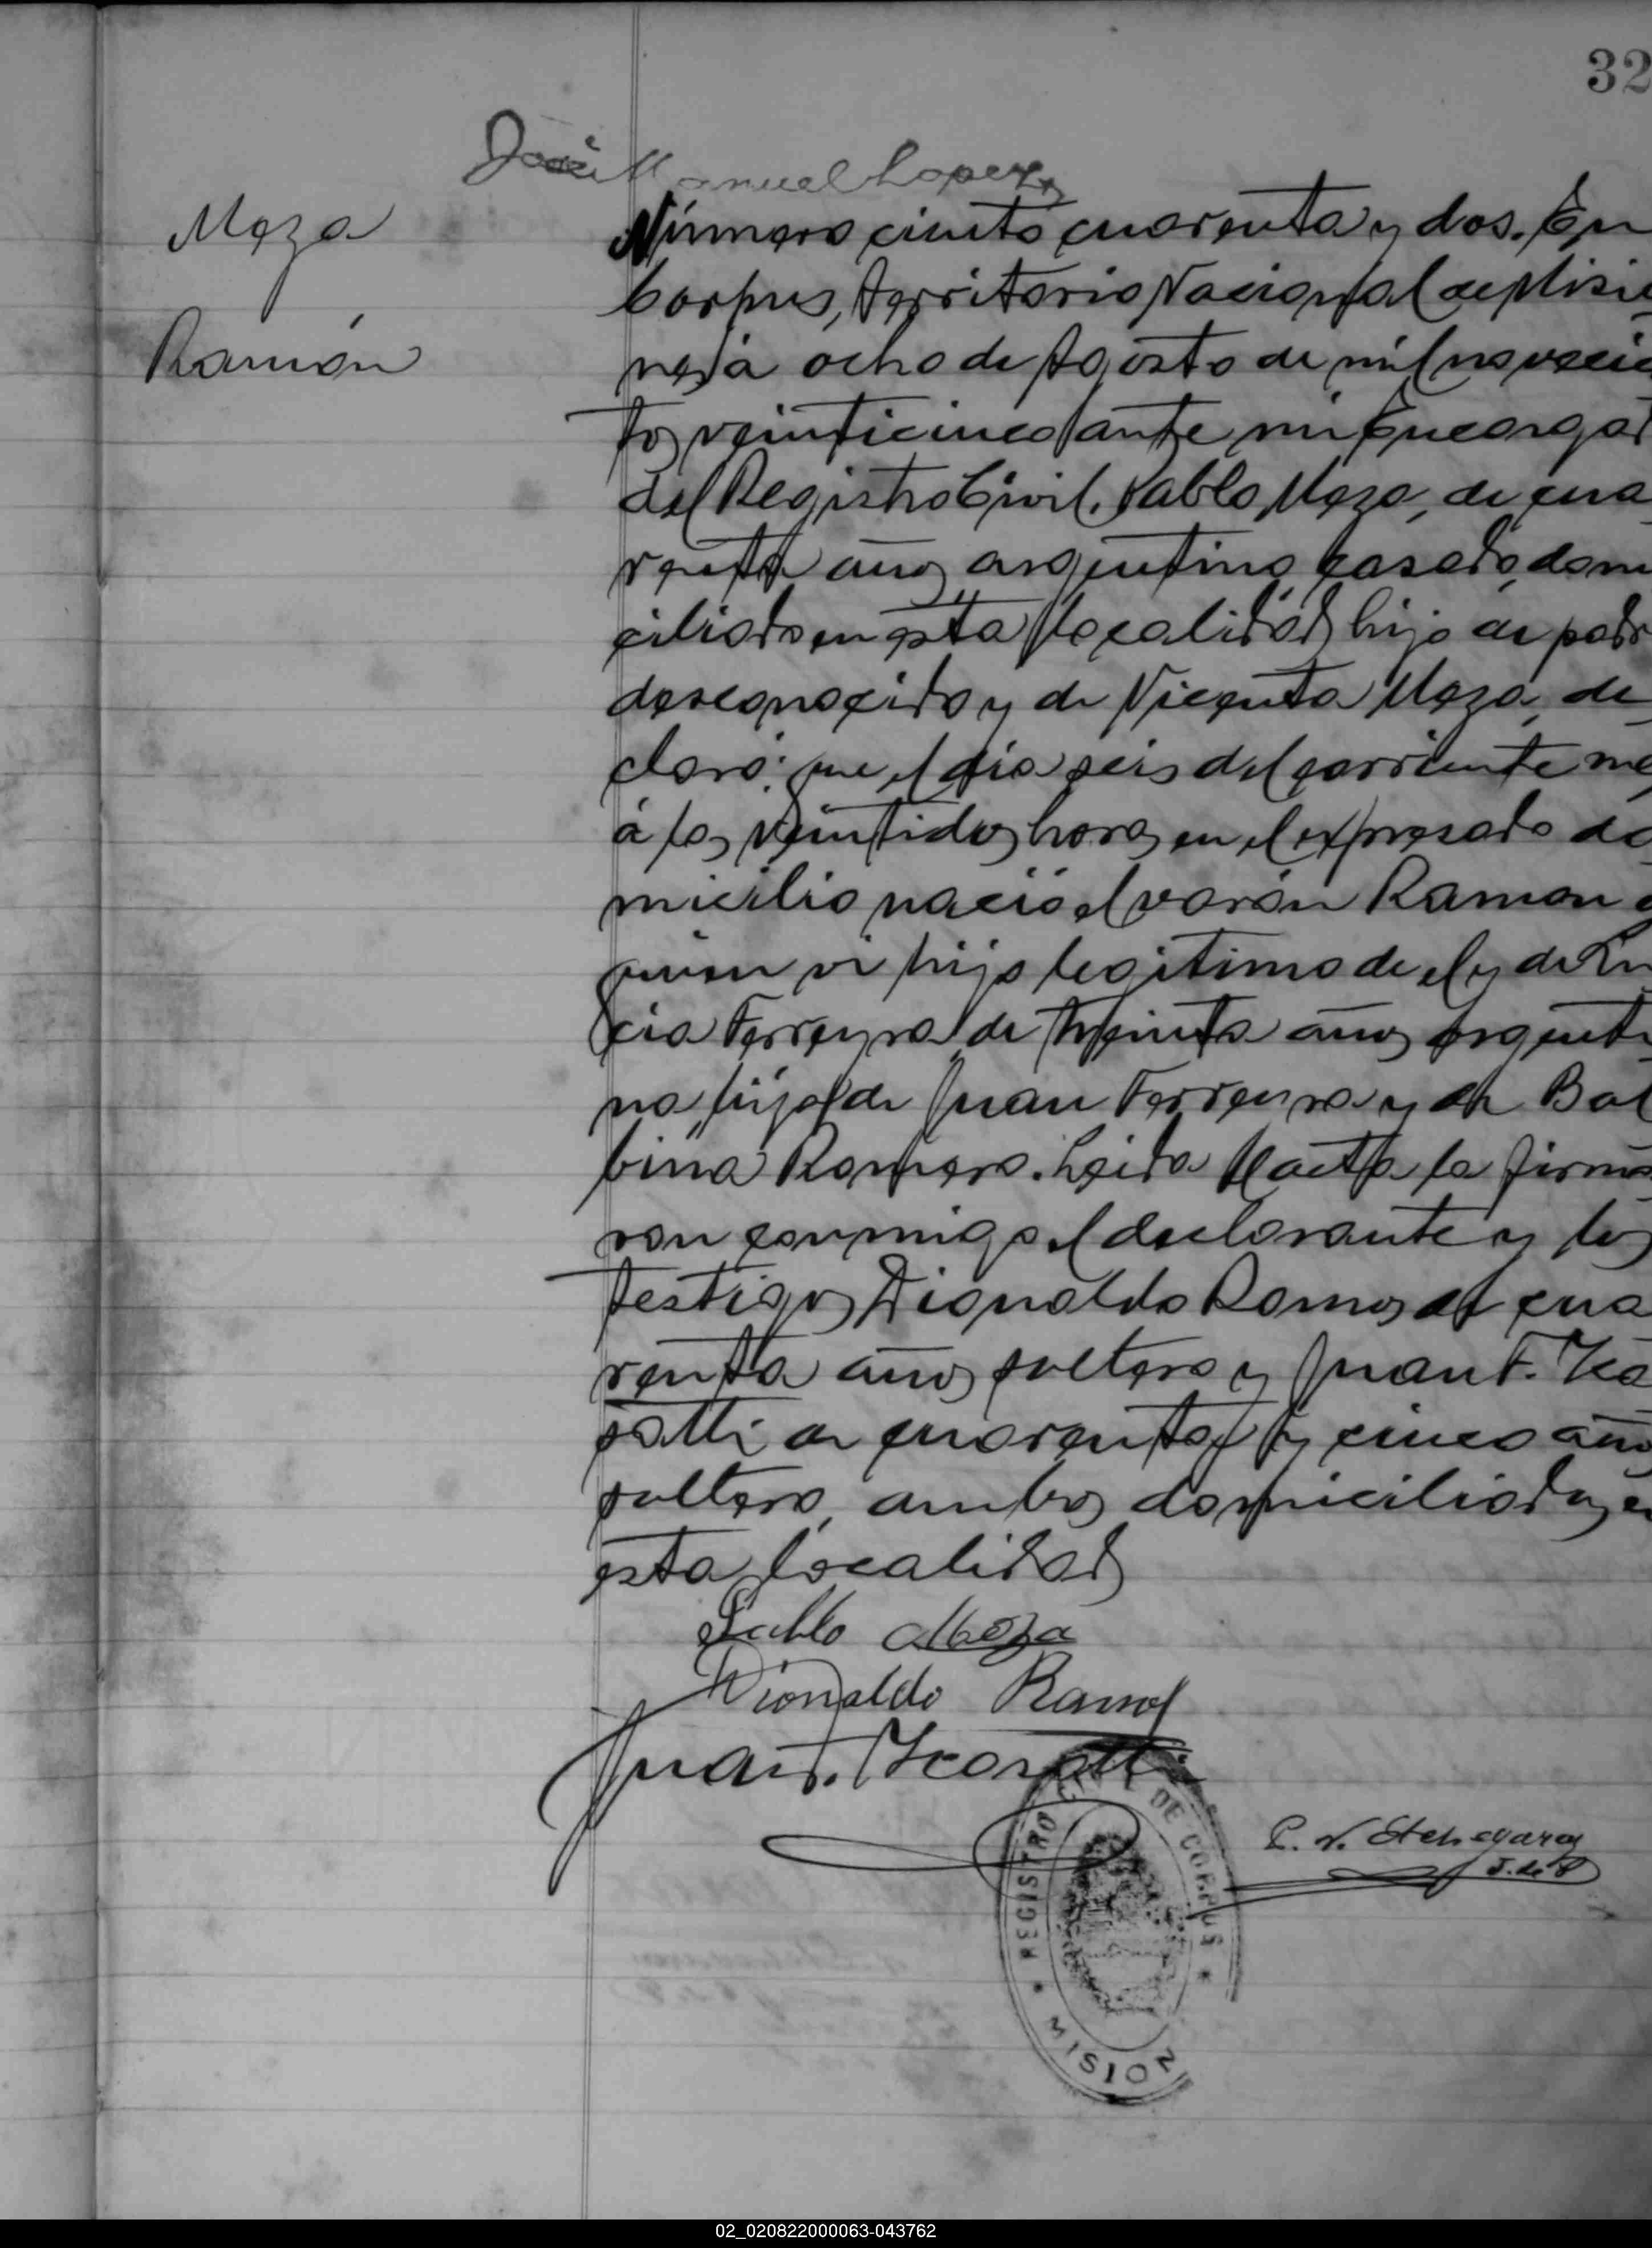 32
José Manuel Lopez
Meza
Ramón
Número ciento cuarenta y dos. En
Corpus, Territorio Nacional de Misio
nes, á ocho de Agosto de mil novecie
tos veinticinco, ante mi Encargad
del Registro Civil. Pablo Meza, de cua
renta años, argentino, casado, domi
ciliado en esta localidad, hijo de padr
desconocido y de Vicenta Meza, de
claró: que el día seis del corriente me
á las veintidos horas en el expresado do
micilio nació el varón Ramon á
quien vi hijo legitimo de el y de Lu
cia Ferreyra, de treinta años, argenti
na, hija de Juan Ferreyra y de Bal
bina Romero. Leida el acta la firma
ron conmigo el declarante y los
testigos Dionaldo Ramos de cua
renta años, soltero y Juan F.
de cuarenta y cinco años
soltero, ambos domiciliados en
esta localidad
Pablo Meza
Dionaldo Ramos
Juan F.
P. N. Etchegaray
J. de P.
REGISTRO CIVIL DE CORPUS * MISION
02_020822000063-043762